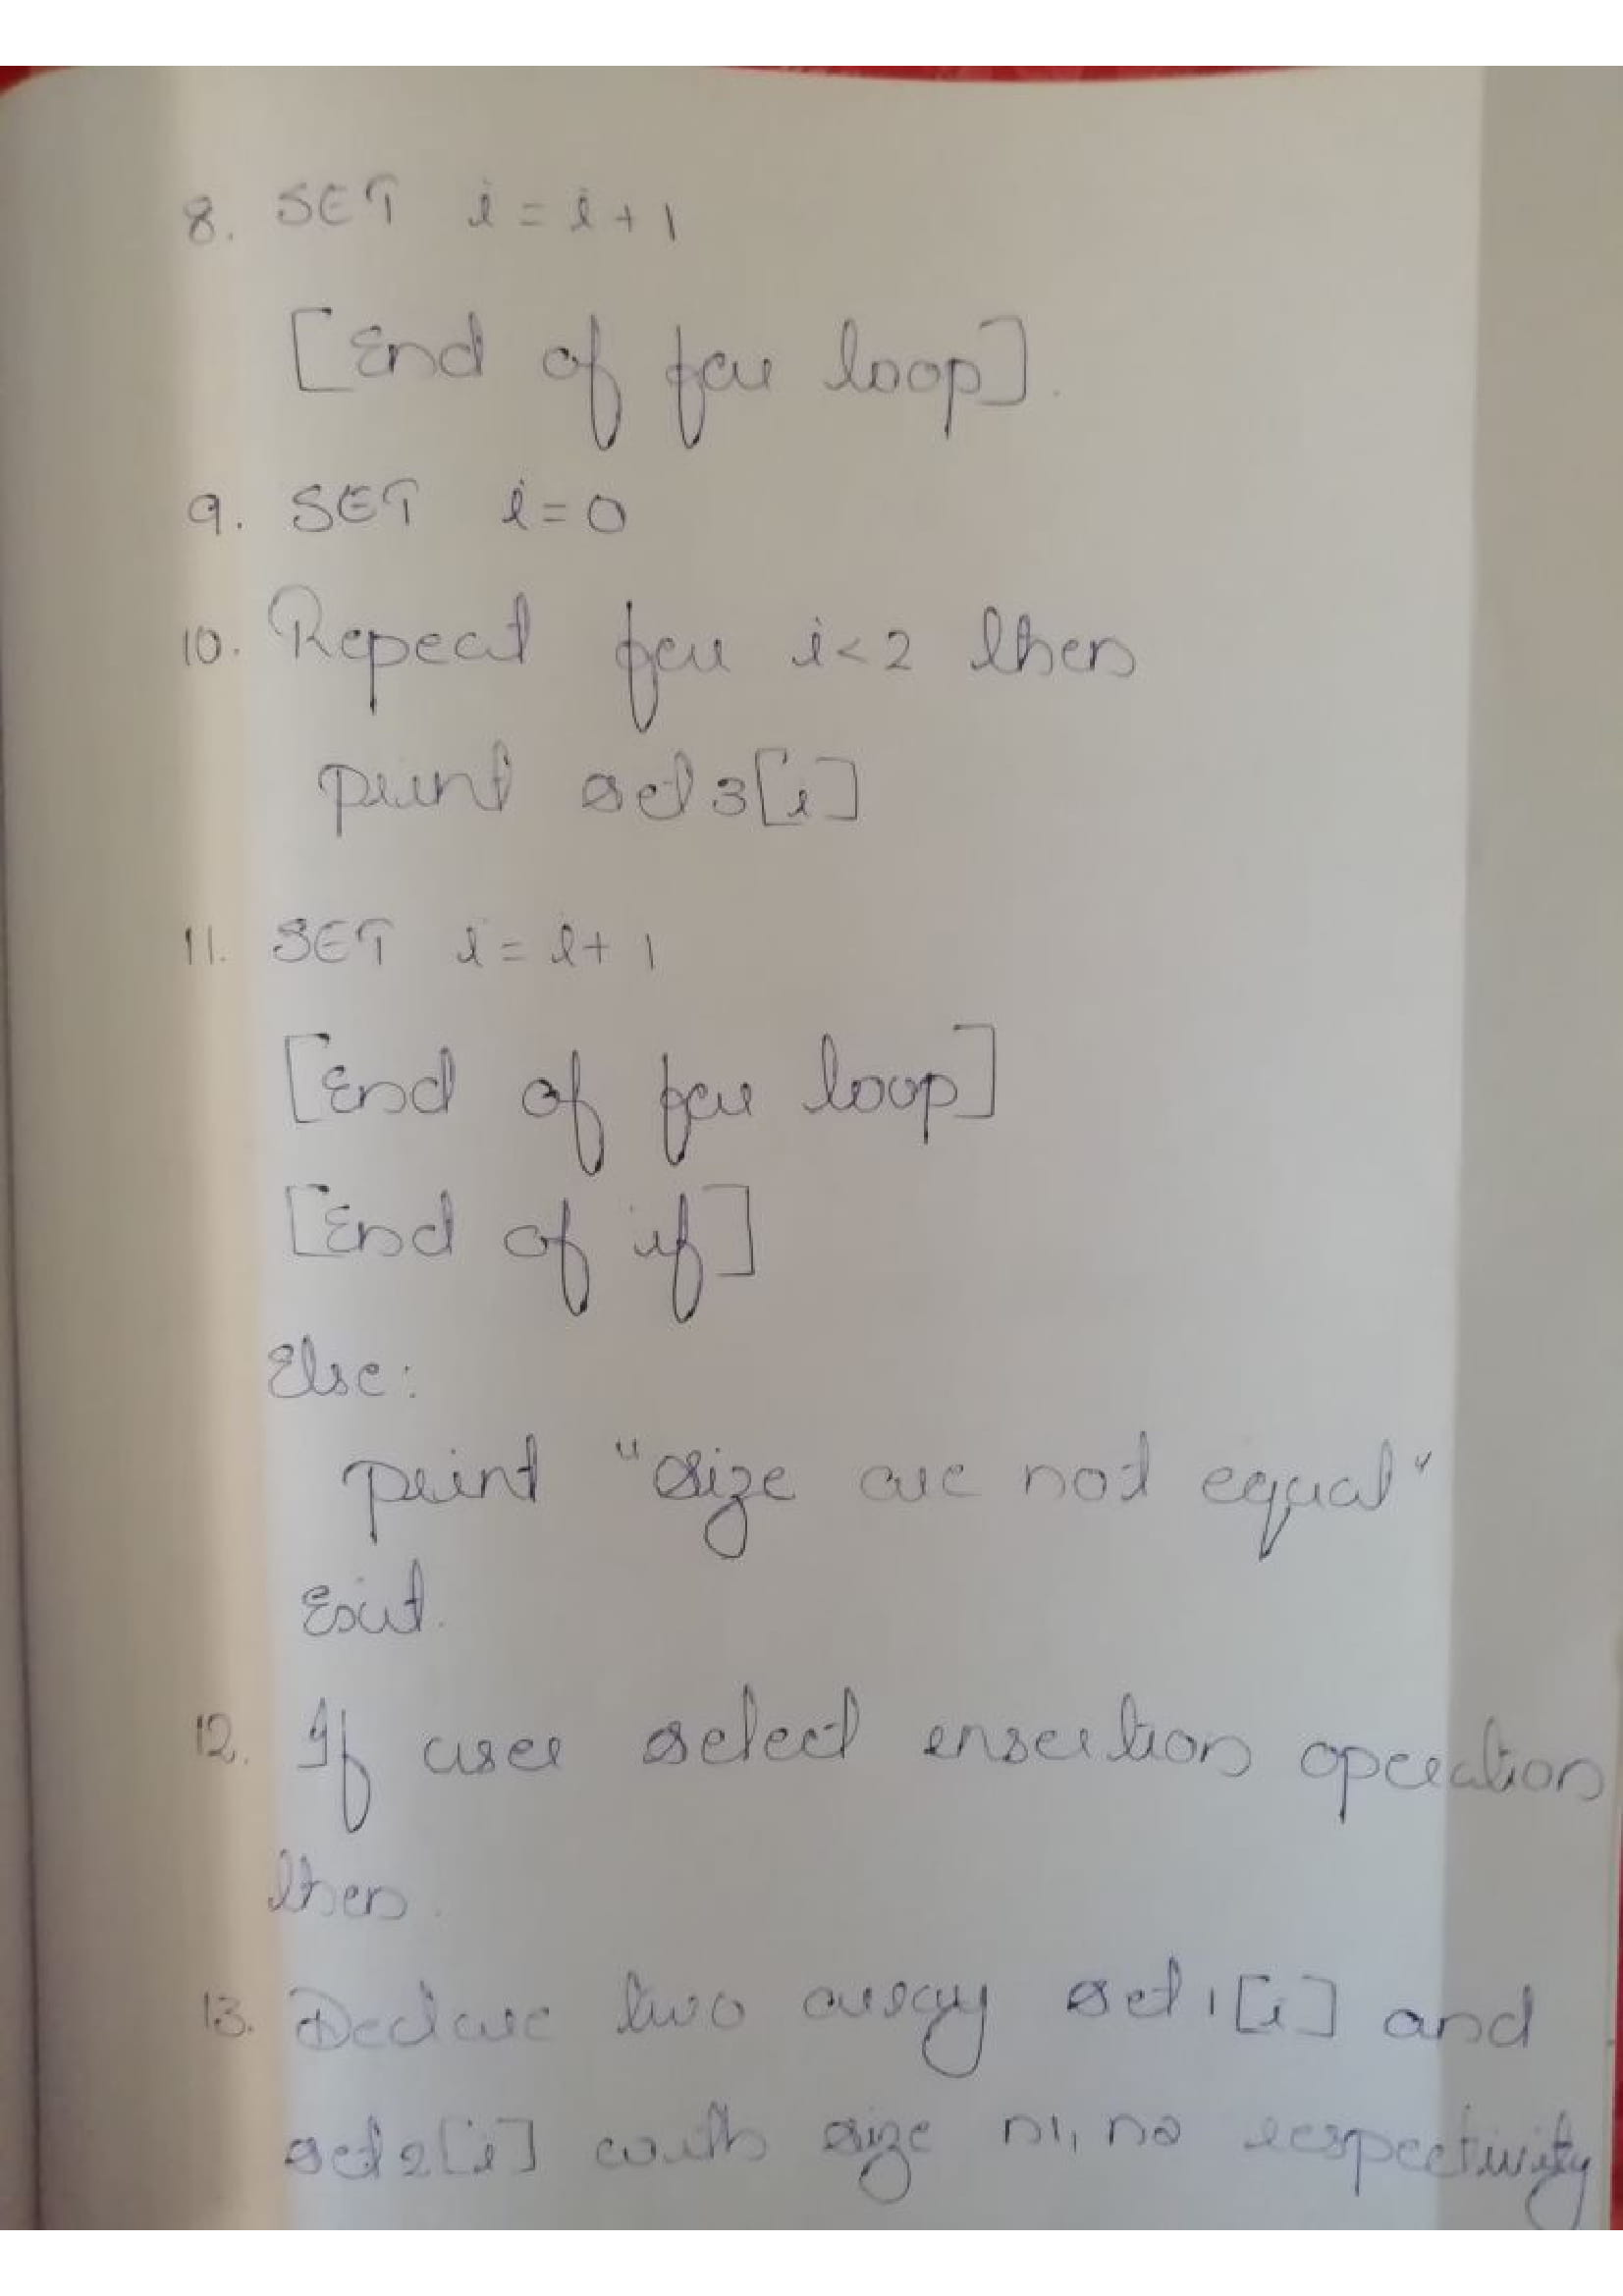 8. SET i = i + 1
[End of for loop].
9. SET i = 0
10. Repeat for i<2 then
print set3[i]
11. SET i = i + 1
[End of for loop]
[End of if]
Else:
print "size are not equal"
Exit.
12. If user select insertion operation
then.
13. Declare two array set1[i] and
set2[i] with size n1, n2 respectivity